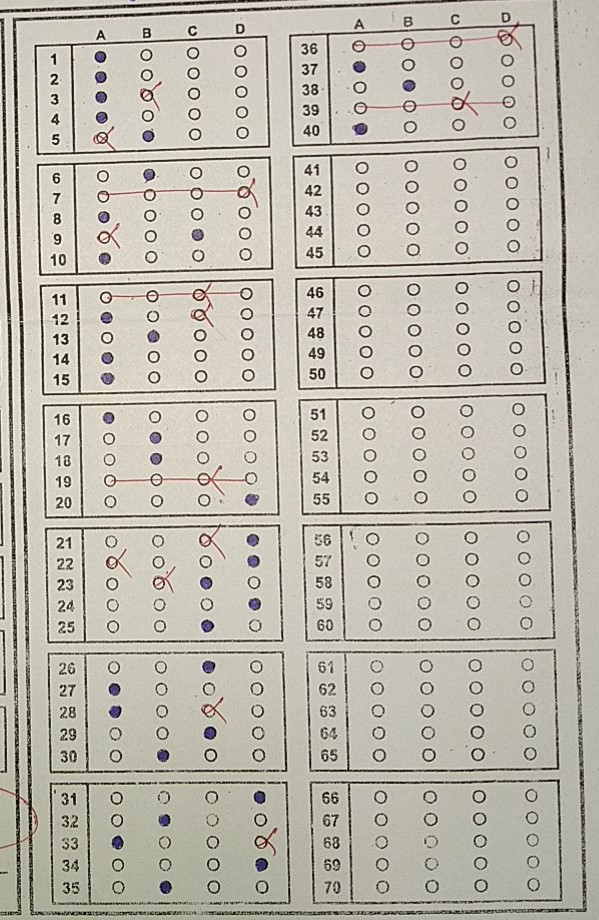 A B C D
1
2
3
4
5
6
7
8
9
10
11
12
13
14
15
16
17
18
19
20
21
22
23
24
25
26
27
28
29
30
31
32
33
34
35
A B C D
36
37
38
39
40
41
42
43
44
45
46
47
48
49
50
51
52
53
54
55
56
57
58
59
60
61
62
63
64
65
66
67
68
69
70